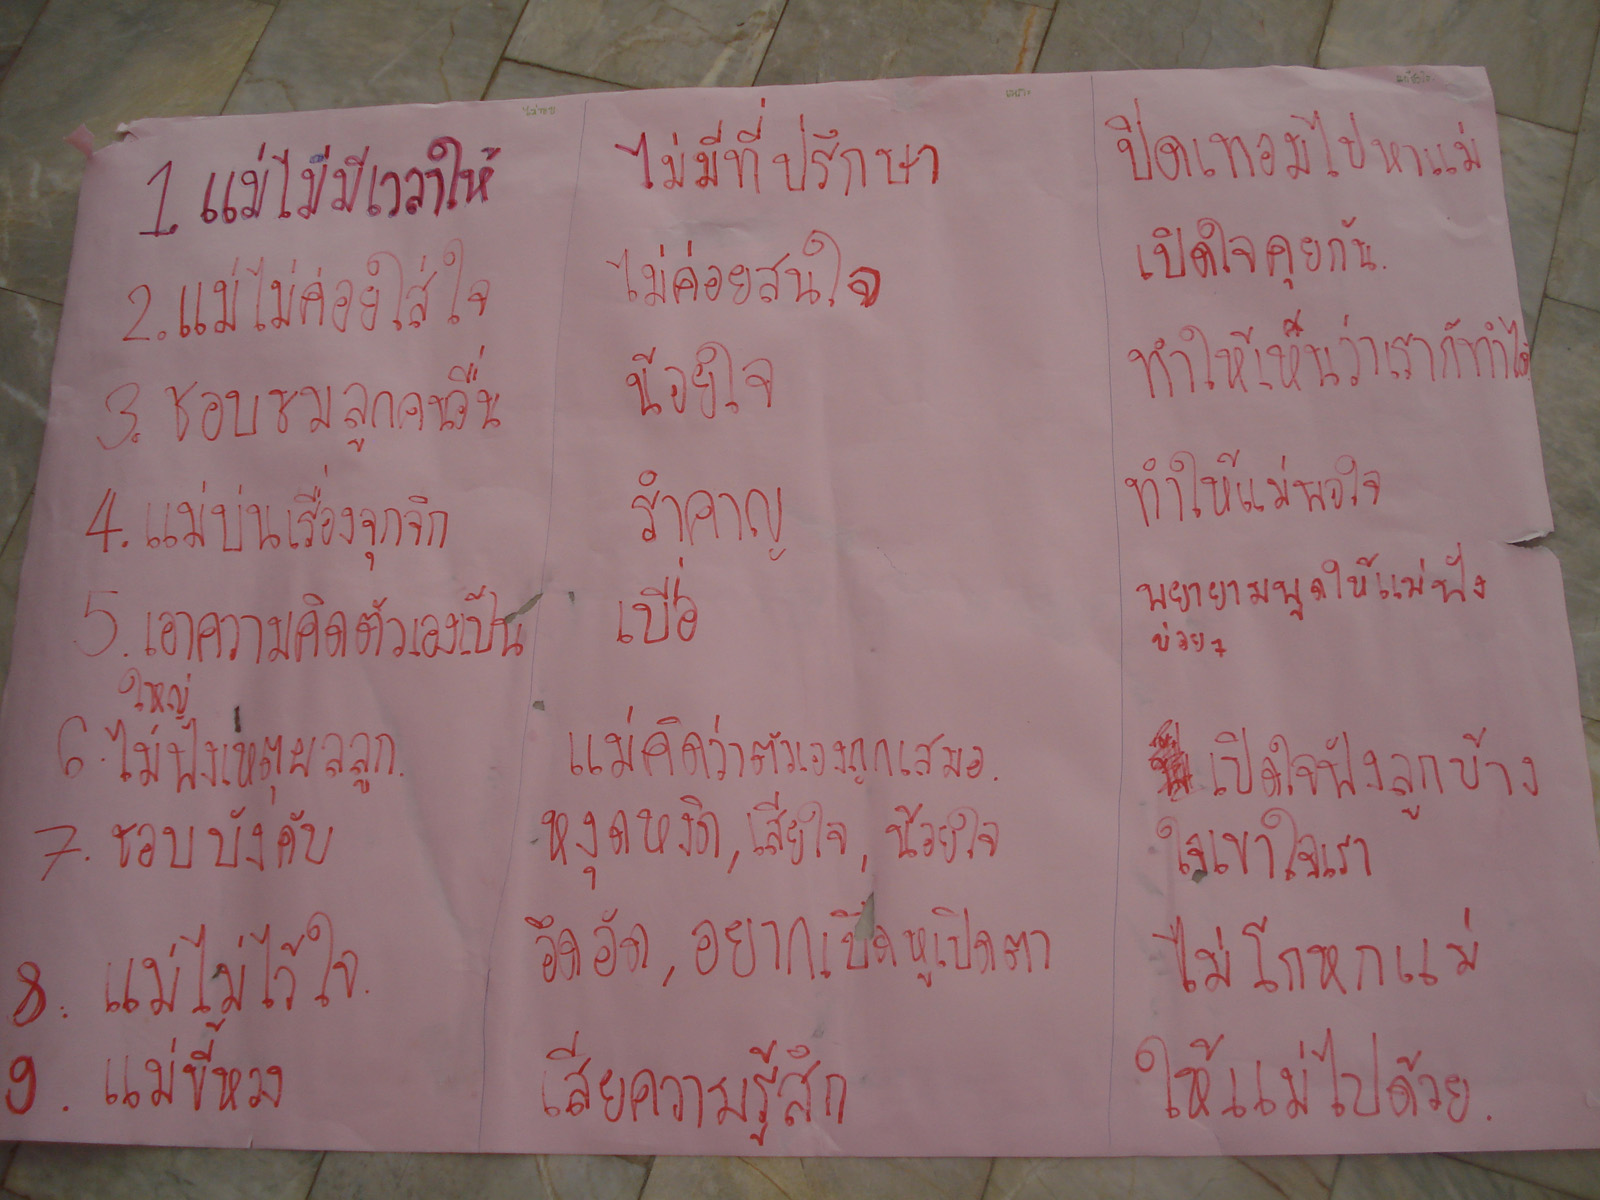 1. แม่ไม่มีเวลาให้
ไม่มีที่ปรึกษา
ปิดเทอมไปหาแม่
2. แม่ไม่ค่อยใส่ใจ
ไม่ค่อยสนใจ
เปิดใจคุยกัน.
3. ชอบชมลูกคนอื่น
น้อยใจ
ทำให้เห็นว่าเราก็ทำได้
4. แม่บ่นเรื่องจุกจิก
รำคาญ
ทำให้แม่พอใจ
5. เอาความคิดตัวเองเป็น
ใหญ่
เบื่อ
พยายามพูดให้แม่ฟัง
บ่อยๆ
6. ไม่ฟังเหตุผลลูก.
แม่คิดว่าตัวเองถูกเสมอ.
เปิดใจฟังลูกบ้าง
7. ชอบบังคับ
หงุดหงิด, เสียใจ, น้อยใจ
ใจเขาใจเรา
8. แม่ไม่ไว้ใจ.
อึดอัด, อยากเปิดหูเปิดตา
ไม่โกหกแม่
9. แม่ขี้หวง
เสียความรู้สึก
ให้แม่ไปด้วย.